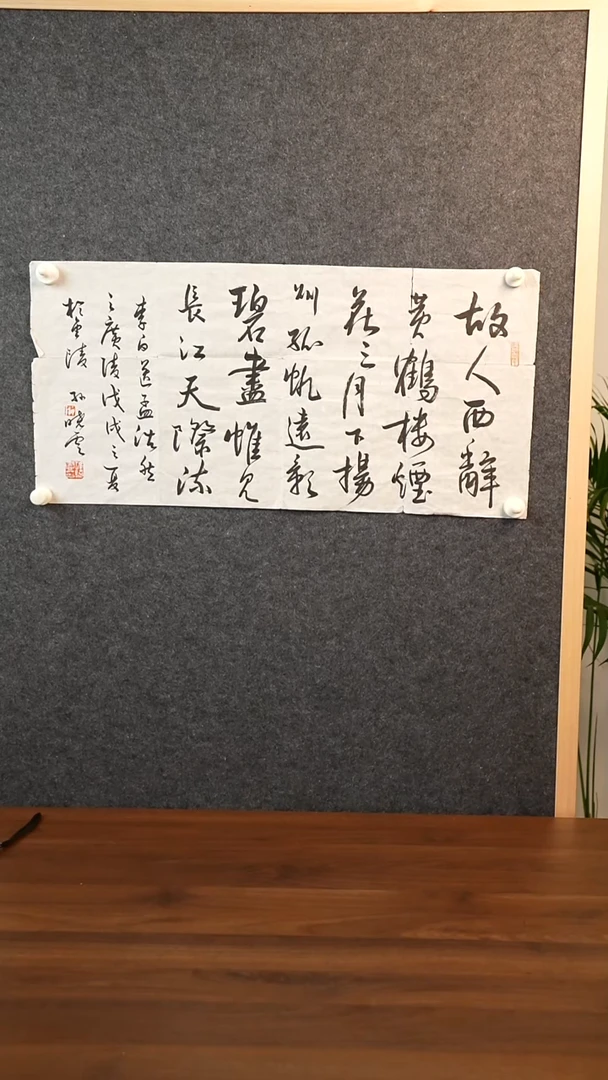 故人西辭
黄鶴樓煙
花三月下揚
州孤帆遠影
碧盡惟見
長江天際流
李白送孟浩然
之廣陵戊戌之夏
於金陵 孙晓云